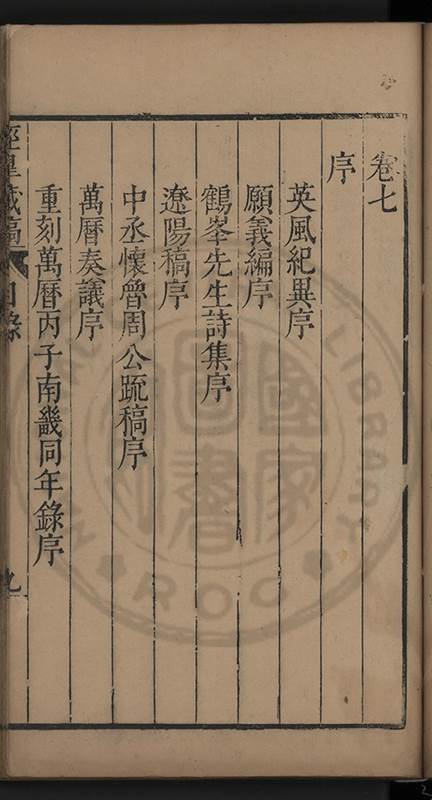 卷七
序
英風紀異序
願義編序
鶴峯先生詩集序
遼陽稿序
中丞懷魯周公疏稿序
萬曆奏議序
重刻萬曆丙子南畿同年錄序
涇臯藏稿 目錄 九